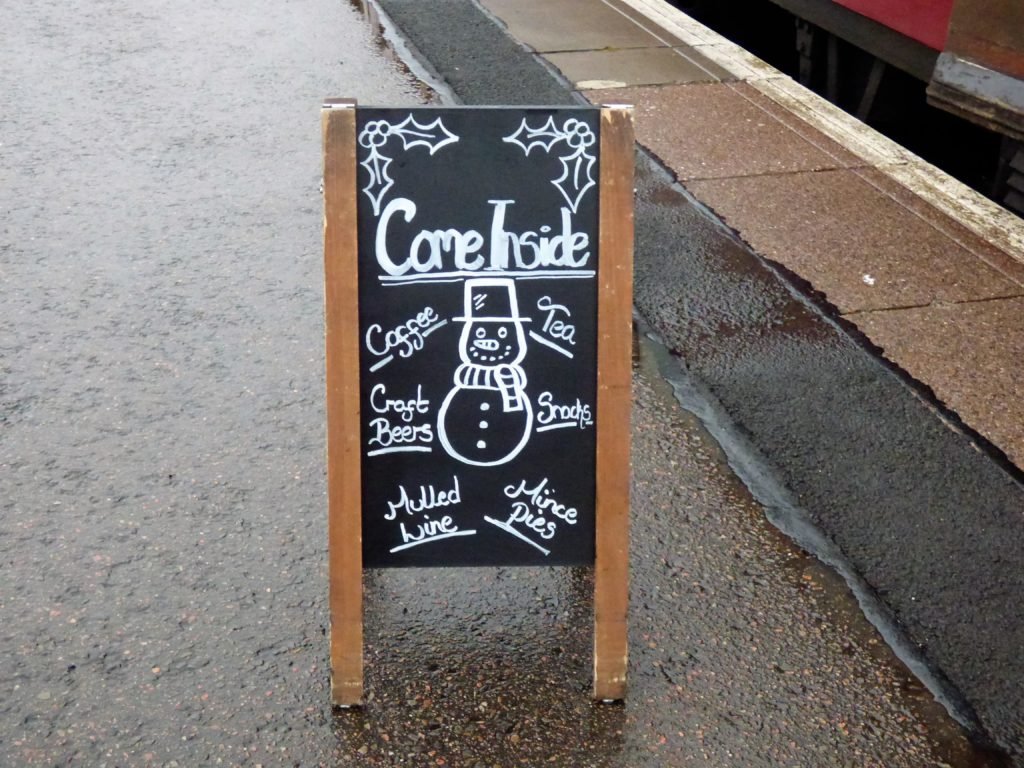 Come Inside
Coffee
Tea
Craft
Beers
Snacks
Mulled
Wine
Mince
Pies